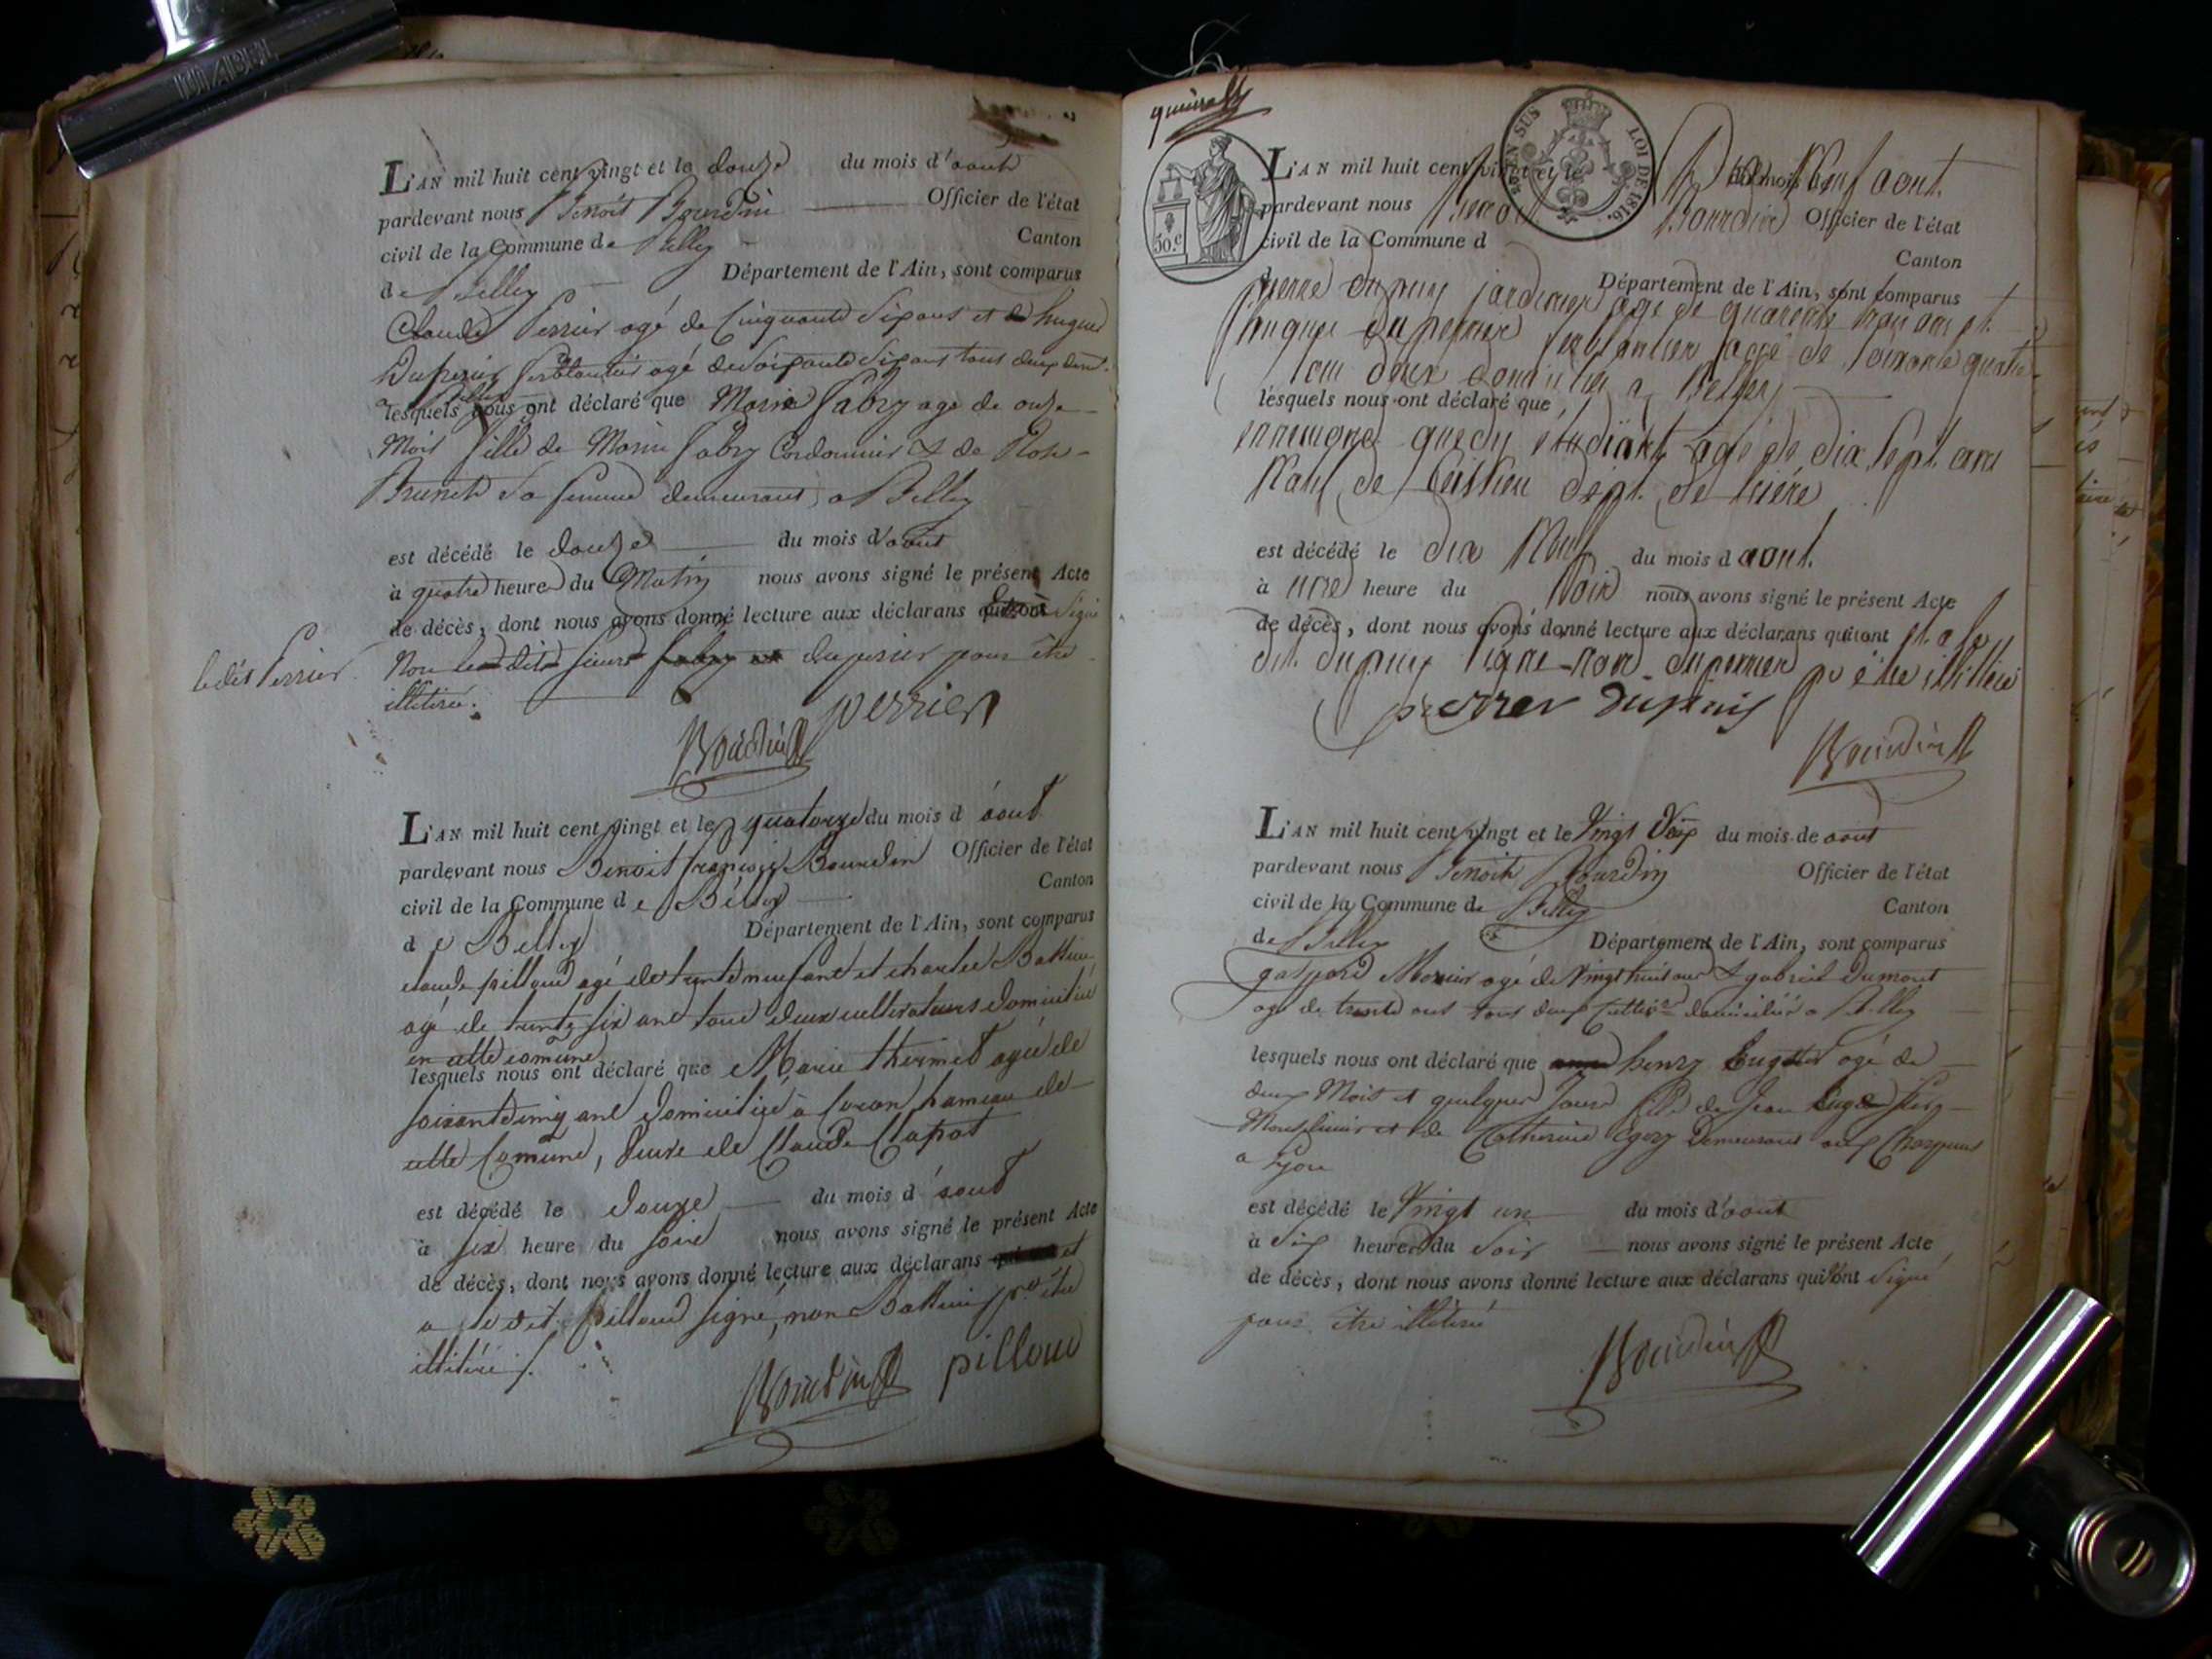 L'AN mil huit cent vingt et le douze du mois d'août
pardevant nous Benoit Bourdin Officier de l'état
civil de la Commune de Belley Canton
de Belley Département de l'Ain, sont comparus
Claude Perrier agé de Cinquante Six ans et hugues
Duperier agé de Soixante Six ans tous deux
lesquels nous ont déclaré que Marie Fabry age de onze
Mois fille de Marin Fabry Cordonnier & de
Brunet Sa femme demeurant a Belley
est décédé le douze du mois d'août
à quatre heure du Matin nous avons signé le présent Acte
de décès, dont nous avons donné lecture aux déclarans
ledit Perrier
Non duperier pour être
illiteré.
perrier
Bourdin
L'AN mil huit cent vingt et le quatorze du mois d août
pardevant nous Benoit françois Bourdin Officier de l'état
civil de la Commune de Belley Canton
de Belley Département de l'Ain, sont comparus
claude pilloud agé de trente neuf ans et charles
agé de trente six ans tous deux cultivateurs domicilié
en cette comune
lesquels nous ont déclaré que Marie thermet agée de
soixante cinq ans domiciliée à hameau de
cette Comune, veuve de Claude Clapot
est décédé le douze du mois d'aout
à six heure du soir nous avons signé le présent Acte
de décès, dont nous avons donné lecture aux déclarans et
a ledit pilloud signé, non pr être
illitéré
Bourdin pilloud
20 EN SUS LOI DE 1816.
50.c
L'AN mil huit cent vingt et le Dix Neuf aout
pardevant nous Benoit Bourdin Officier de l'état
civil de la Commune d
Canton
Département de l'Ain, sont comparus
Pierre dupuy jardinier age de quarante trois ans et
hugue duperrier agé de soixante quatre
tous deux domicilies a Belley
lesquels nous ont déclaré que
étudiant agé de dix sept ans
Natif de dept. de
est décédé le dix Neuf du mois d aout.
à une heure du Soir nous avons signé le présent Acte
de décès, dont nous avons donné lecture aux déclarans et a le
dit dupuy signe non duperrier pr être
pierrer dupuis
Bourdin
L'AN mil huit cent vingt et le Vingt Deux du mois de aout
pardevant nous Benoit Bourdin Officier de l'état
civil de la Commune de Belley Canton
de Belley Département de l'Ain, sont comparus
gaspard Monier agé de Vingt huit ans & gabriel Dumont
age de trente ans tous deux domiciliés a Belley
lesquels nous ont déclaré que henry agé de
deux Mois et quelques Jours fils de Jean
et de Catherine Demeurant aux
a Lyon
est décédé le Vingt un du mois d'aout
à Six heure du Soir nous avons signé le présent Acte
de décès, dont nous avons donné lecture aux déclarans qui ont Signé
pour être illiteré
Bourdin